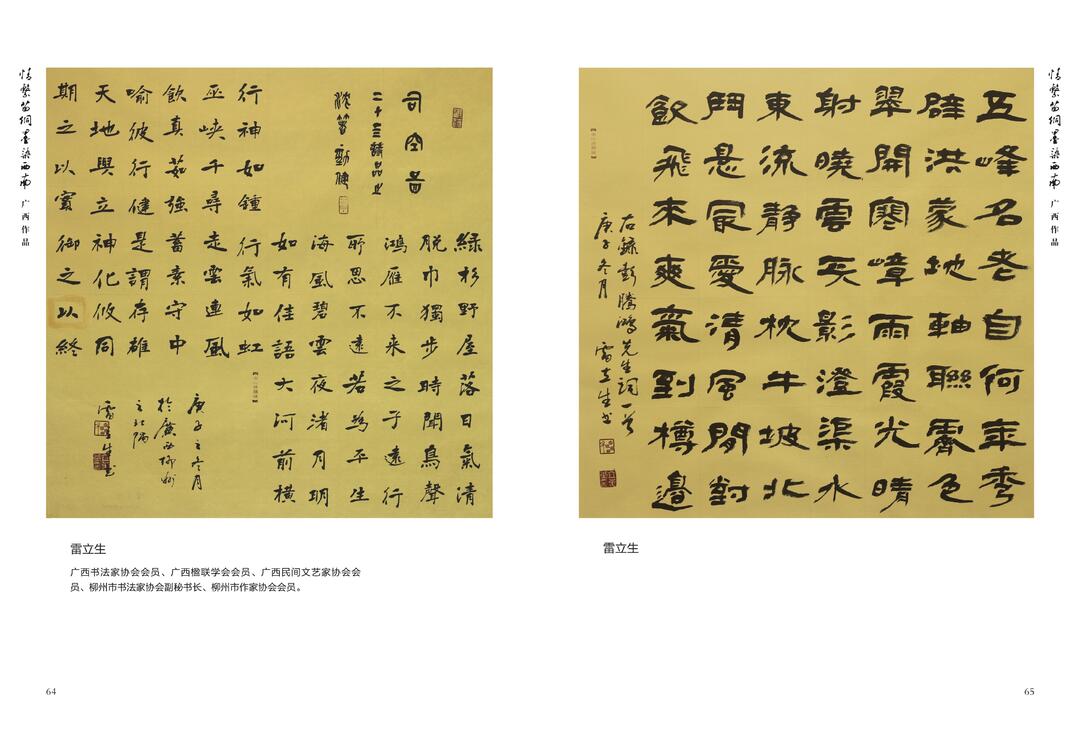 情繫苗侗墨染西南 广西作品
司空圖
二十亖詩品之
沈著勁健
綠杉野屋落日氣清
脫巾獨步時聞鳥聲
鴻雁不来之子遠行
所思不遠若為平生
海風碧雲夜渚月明
如有佳語大河前橫
行神如鍾行氣如虹
巫峽千尋走雲連風
飲真茹強蓄素守中
喻彼行健是謂存雄
天地與立神化攸同
期之以實御之以終
庚子之冬月
於廣西柳州
之北隅
雷立生書
雷立生
广西书法家协会会员、广西楹联学会会员、广西民间文艺家协会会
员、柳州市书法家协会副秘书长、柳州市作家协会会员。
64
情繫苗侗墨染西南 广西作品
五峰名老自何年秀
辟洪蒙地軸聯霽色
翠開寒嶂雨霞光晴
射曉雲天影澄渠水
東流靜脈枕牛坡北
鬥悬冣愛清風閒對
飲飛来爽氣到樽邊
右録彭騰鴻先生詞一首
庚子冬月 雷立生书
雷立生
65